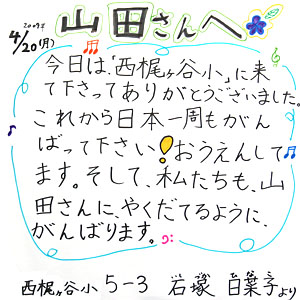 山田さんへ
2009年
4/20(月)
今日は、「西梶ヶ谷小」に来
て下さってありがとうございました。
これから日本一周もがん
ばって下さい!おうえんして
ます。そして、私たちも、山
田さんに、やくだてるように、
がんばります。
西梶ヶ谷小 5-3 岩塚 百葉子より